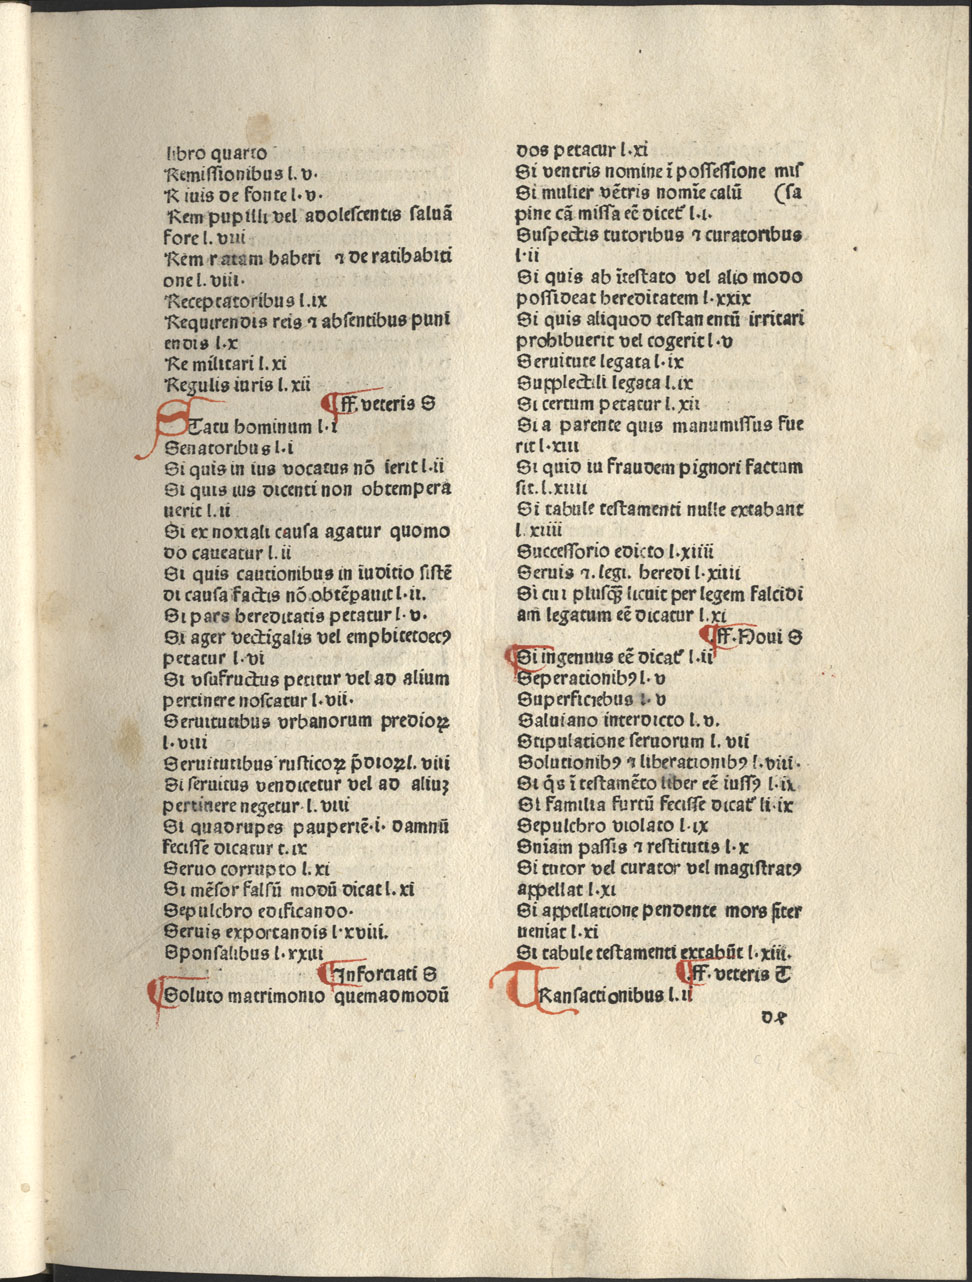 libro quarto
Remissionibus l. v·
R iuis de fonte l·v·
Rem pupilli vel adolescentis saluā
fore l. viii
Rem ratam haberi ⁊ de ratihabiti
one l. viii·
Receptatoribus l.ix
Requirendis reis ⁊ absentibus puni
endis l.x
Re militari l. xi
Regulis iuris l. xii
¶ff. veteris S
STatu hominum l·i
Senatoribus l·i
Si quis in ius vocatus nō ierit l·ii
Si quis ius dicenti non obtempera
uerit l. ii
Si ex noxiali causa agatur quomo
do caueatur l. ii
Si quis cautionibus in iuditio sistē
di causa factis nō obtēpauit l·ii.
Si pars hereditatis petatur l· v·
Si ager vectigalis vel emphitetoecꝰ
petatur l· vi
Si vsufructus petitur vel ad alium
pertinere noscatur l·vii·
Seruitutibus vrbanorum predioꝝ
l·viii
Seruitutibus rusticoꝝ p̄dioꝝ l. viii
Si seruitus vendicetur vel ad aliuꝫ
pertinere negetur l. viii
Si quadrupes pauperiē·i· damnū
fecisse dicatur t. ix
Seruo corrupto l. xi
Si mēsor falsū modū dicat l. xi
Sepulchro edificando·
Seruis exportandis l·xviii.
Sponsalibus l. xxiii
¶Inforciati S
¶Soluto matrimonio quemadmodū
dos petatur l·xi
Si ventris nomine ī possessione mis
Si mulier vētris nomīe calū (sa
pine cā missa eē dicet̄ l·i.
Suspectis tutoribus ⁊ curatoribus
l·ii
Si quis ab ītestato vel alio modo
possideat hereditatem l·xxix
Si quis aliquod testanentū irritari
prohibuerit vel cogerit l·v
Seruitute legata l·ix
Supplectili legata l.ix
Si certum petatur l. xii
Si a parente quis manumissus fue
rit l·xiii
Si quid iu fraudem pignori factum
sit. l.xiiii
Si tabule testamenti nulle extabant
l. xiiii
Successorio edicto l·xiiii
Seruis ⁊. legi. heredi l·xiiii
Si cui plusqꝫ licuit per legem falcidi
am̄ legatum eē dicatur l. xi
¶ff. Noui S
¶Si ingenuus eē dicat̄ l.ii
Seperationibꝰ l· v
Superficiebus l· v
Saluiano interdicto l. v.
Stipulatione seruorum l. vii
Solutionibꝰ ⁊ liberationibꝰ l·viii·
Si q̇s ī testamēto liber eē iussꝰ l·ix
Si familia furtū fecisse dicat̄ li·ix
Sepulchro violato l·ix
Sniam passis ⁊ restitutis l·x
Si tutor vel curator vel magistratꝰ
appellat l·xi
Si appellatione pendente mors īter
ueniat l.xi
Si tabule testamenti extabūt l·xiii·
¶ff. veteris T
TRansactionibus l. ii
de